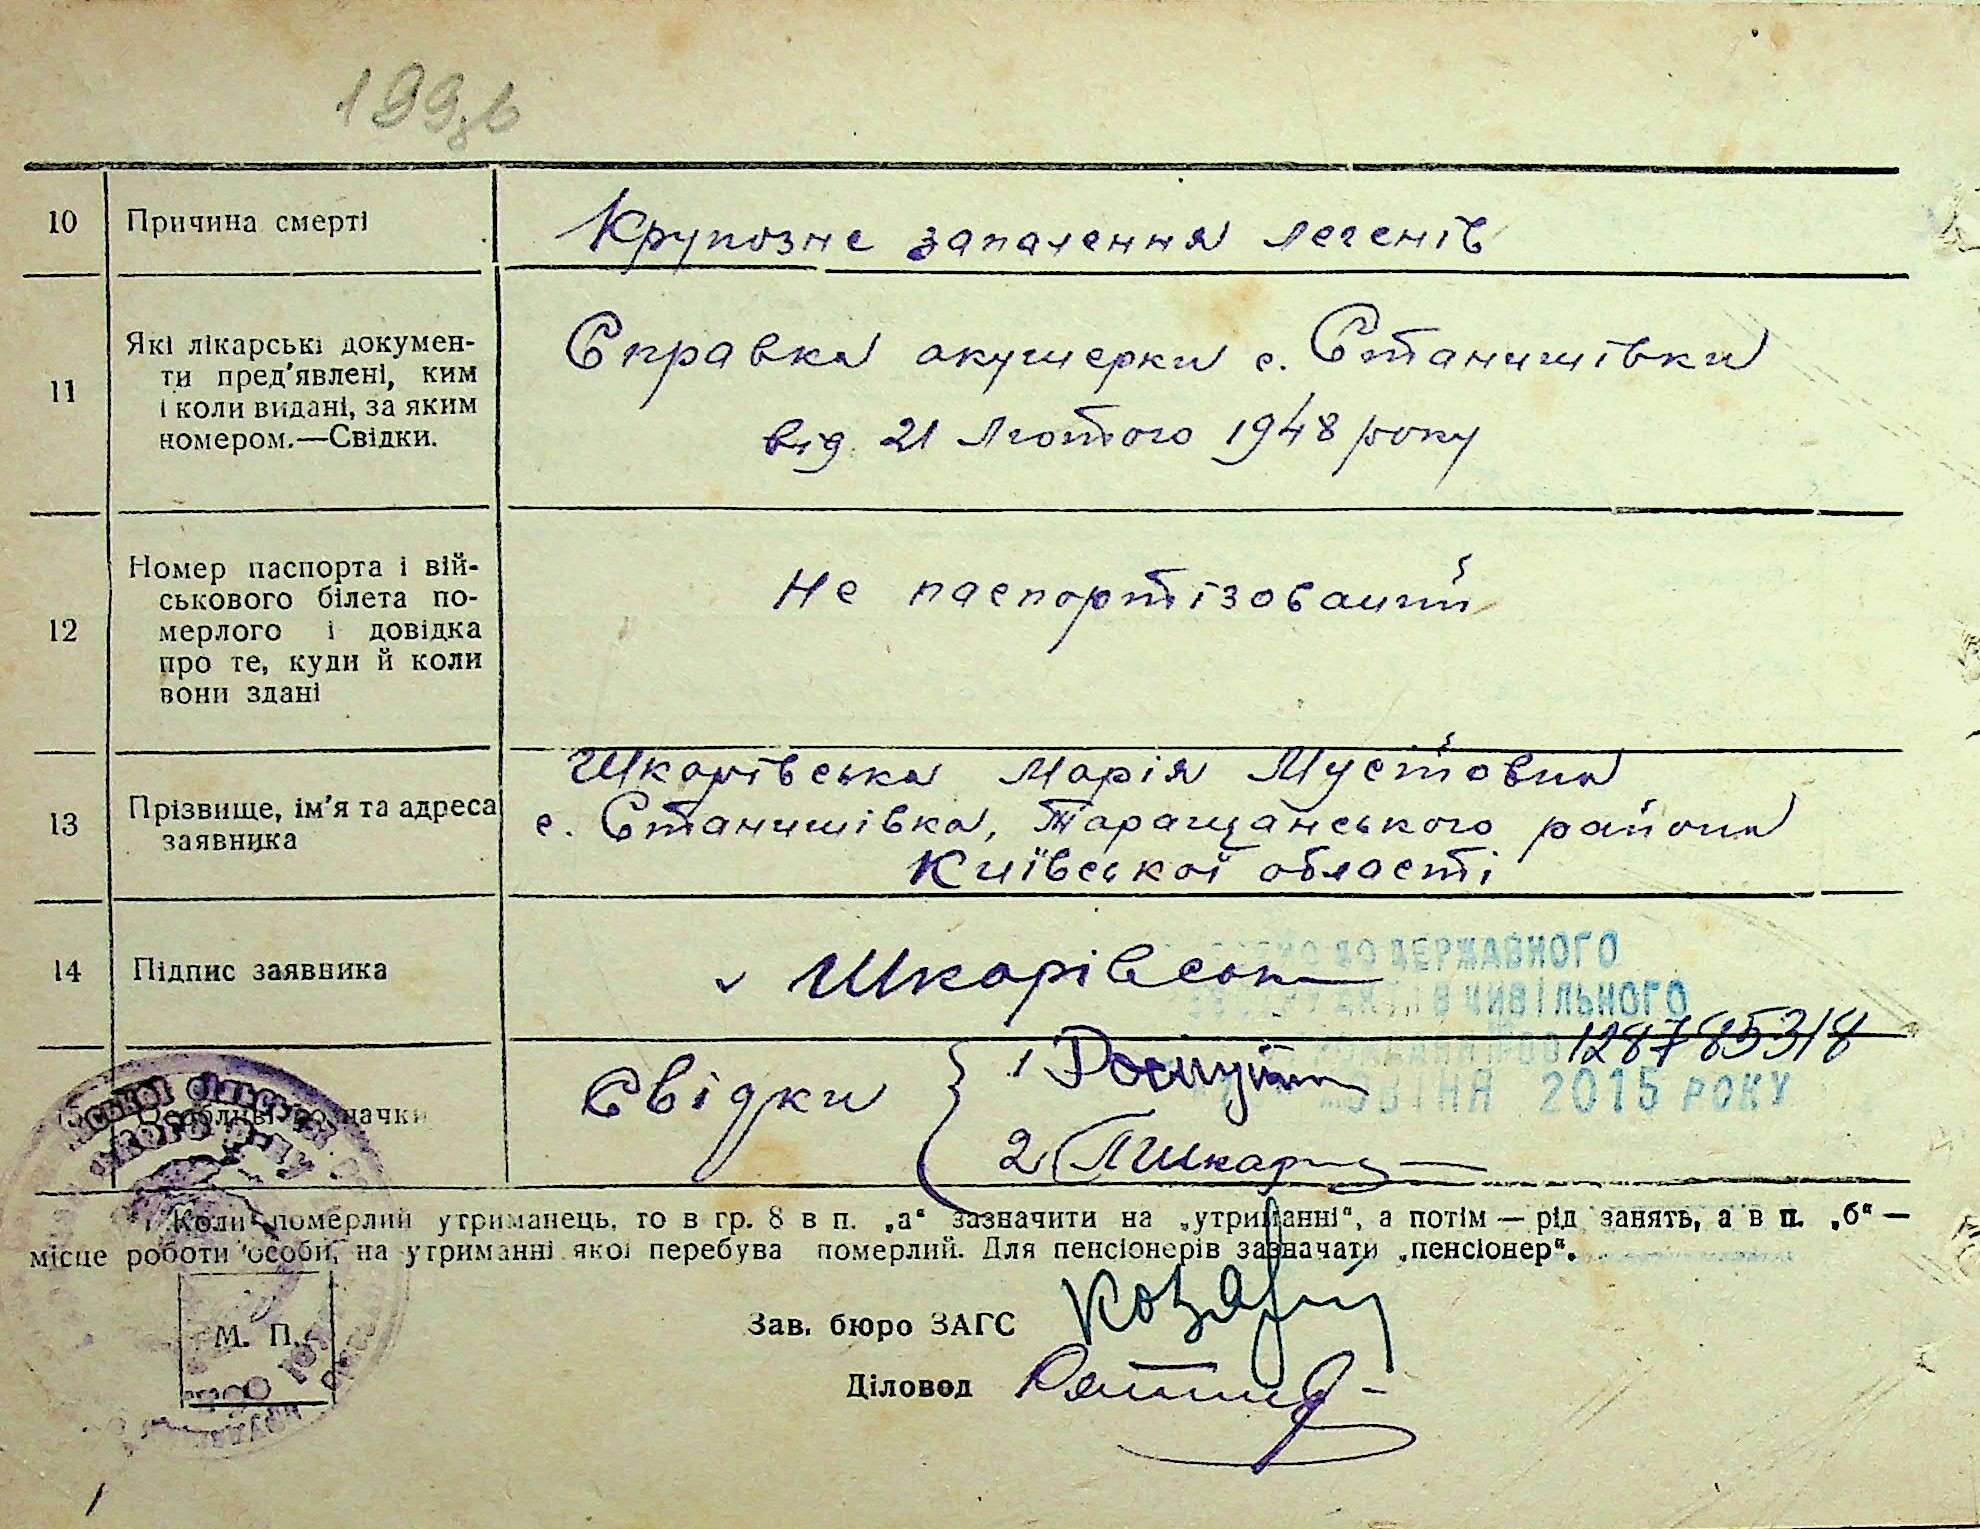 199зв
10 Причина смерті Крупозне запалення легенів
11 Які лікарські докумен-
ти пред'явлені, ким
і коли видані, за яким
номером.—Свідки.
Справка акушерки с. Станишівки
від 21 Лютого 1948 року
12 Номер паспорта і вій-
ськового білета по-
мерлого і довідка
про те, куди й коли
вони здані
Не паспортізований
13 Прізвище, ім'я та адреса
заявника
Шкарівська Марія Мусійовна
с. Станишівка, Таращанського района
Київської області
14 Підпис заявника Шкарівськ
ДО ДЕРЖАВНОГО
ЦИВІЛЬНОГО
12878531/8
2015 РОКУ
Особливі значки
Свідки 1
2
Коли померлий утриманець, то в гр. 8 в п. „а“ зазначити на „утриманні“, а потім — рід занять, а в п. „б“ —
місце роботи особи, на утриманні якої перебува померлий. Для пенсіонерів зазначати „пенсіонер“.
М. П.
Зав. бюро ЗАГС
Діловод